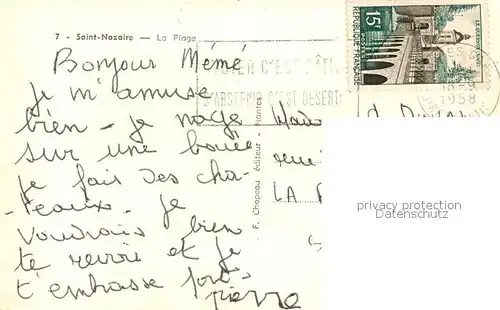 7 - Saint-Nazaire — La Plage
Bonjour Mémé
je m'amuse
bien - je nage
sur une bouée
je fais des cha-
-teaux. je
voudrais bien
te revoir et je
t'embrasse fort
pierre
F. Chapeau éditeur - Nantes
C'EST BÂTI
S'ABSTENIR C'EST DÉSERT
15F
REPUBLIQUE FRANÇAISE
1958
LA
privacy protection
Datenschutz